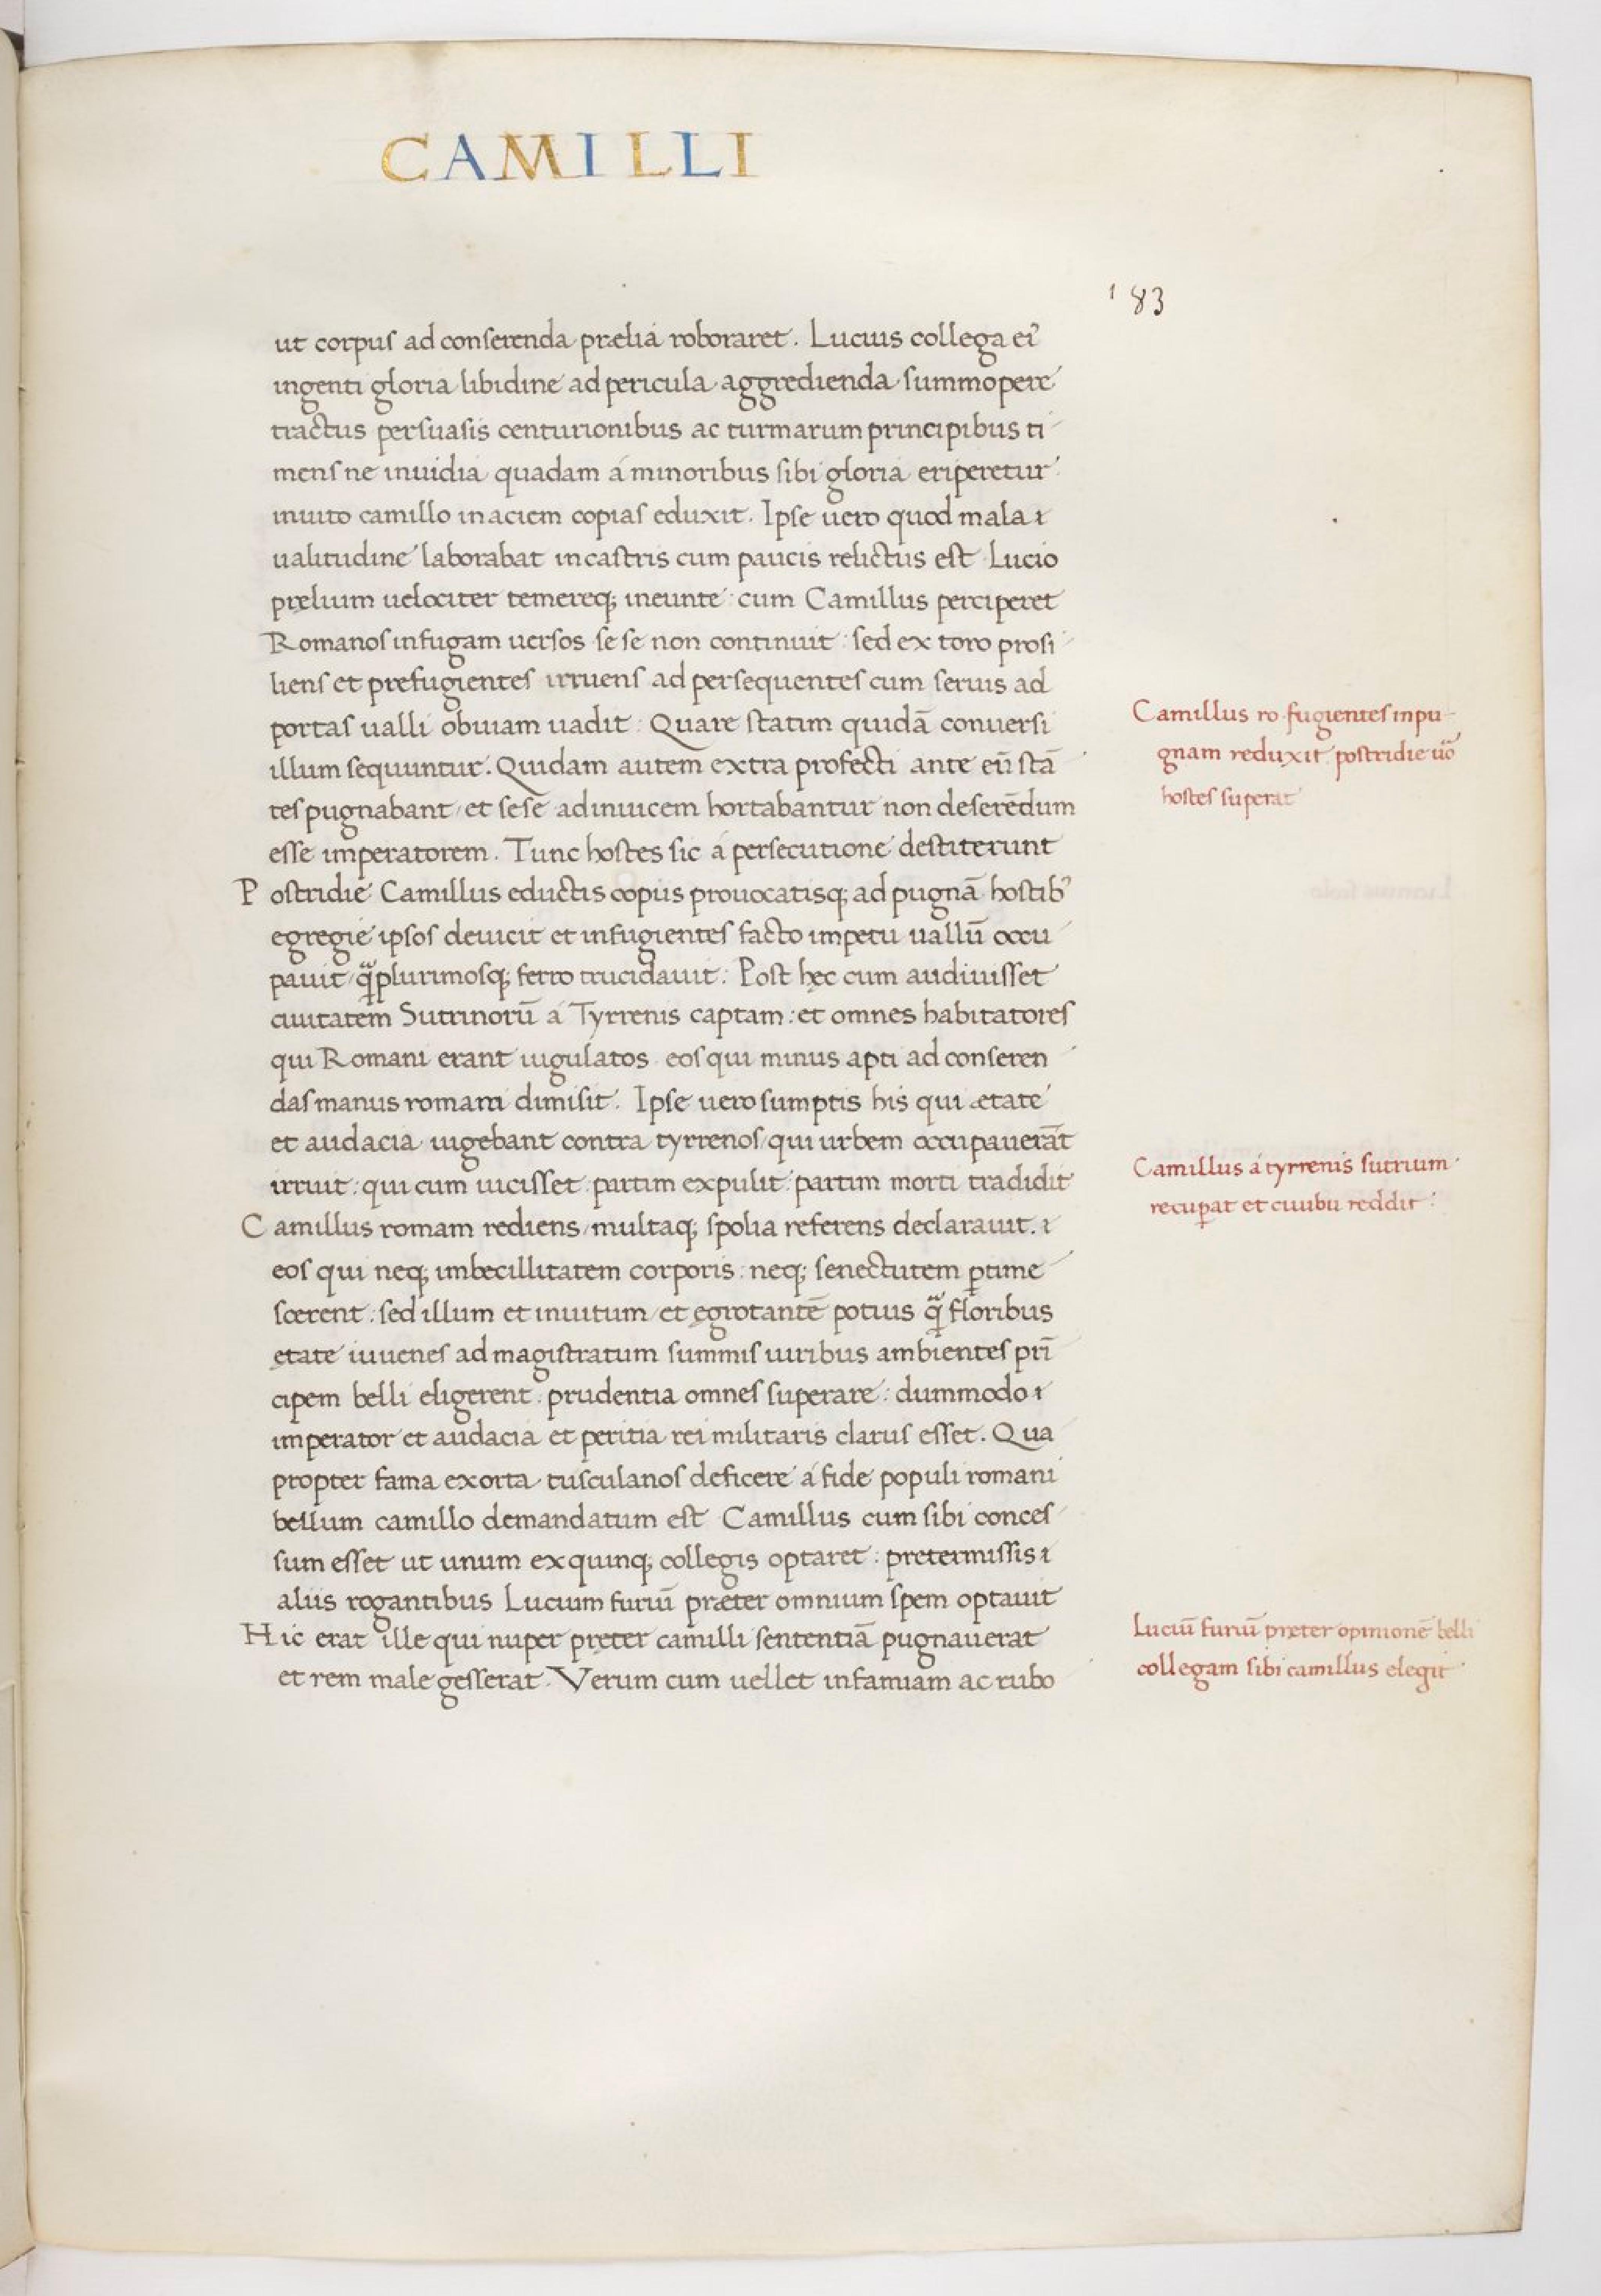 CAMILLI
183
ut corpus ad conserenda prælia roboraret. Lucius collega ei᾽
ingenti gloria libidine ad pericula aggredienda summopere
tractus persuasis centurionibus ac turmarum principibus ti
mens ne inuidia quadam á minoribus sibi gloria eriperetur
inuito camillo in aciem copias eduxit. Ipse uero quod mala
ualitudine laborabat in castris cum paucis relictus est Lucio
pręlium uelociter temereq; ineunte: cum Camillus perciperet
Romanos in fugam uersos sese non continuit: sed ex toro prosi
liens et prefugientes irruens ad persequentes cum seruis ad
portas ualli obuiam uadit: Quare statim quidā conuersi
illum sequuntur. Quidam autem extra profecti ante eū stā
tes pugnabant/ et sese adinuicem hortabantur non deserēdum
esse imperatorem. Tunc hostes sic á persecutione destiterunt
Postridie Camillus eductis copiis prouocatisq; ad pugnā hostib᾽
egregie ipsos deuicit et infugientes facto impetu uallū occu
pauit/ q̄plurimosq; ferro trucidauit: Post hęc cum audiuisset
ciuitatem Sutrinorū á Tyrrenis captam: et omnes habitatores
qui Romani erant iugulatos eos qui minus apti ad conseren
das manus romam dimisit. Ipse uero sumptis his qui ætate
et audacia uigebant contra tyrrenos/ qui urbem occupauerāt
irruit: qui cum uicisset partim expulit: partim morti tradidit
Camillus romam rediens/ multaq; spolia referens declarauit.
eos qui neq; imbecillitatem corporis: neq; senectutem ꝑtime
scerent: sed illum et inuitum/ et ęgrotantē potius q̄ floribus
ętate iuuenes ad magistratum summis uiribus ambientes prī
cipem belli eligerent: prudentia omnes superare: dummodo
imperator et audacia et peritia rei militaris clarus esset. Qua
propter fama exorta tusculanos deficere á fide populi romani
bellum camillo demandatum est Camillus cum sibi conces
sum esset ut unum ex quinq; collegis optaret: pretermissis
aliis rogantibus Lucium furiū præter omnium spem optauit
Hic erat ille qui nuper pręter camilli sententiā pugnauerat
et rem male gesserat. Verum cum uellet infamiam ac rubo
Camillus ro. fugientes in pu
gnam reduxit postridie uō
hostes superat
Camillus á tyrrenis sutrium
recuꝑat et ciuibu reddit:
Luciū furiū pręter opinionē belli
collegam sibi camillus elegit